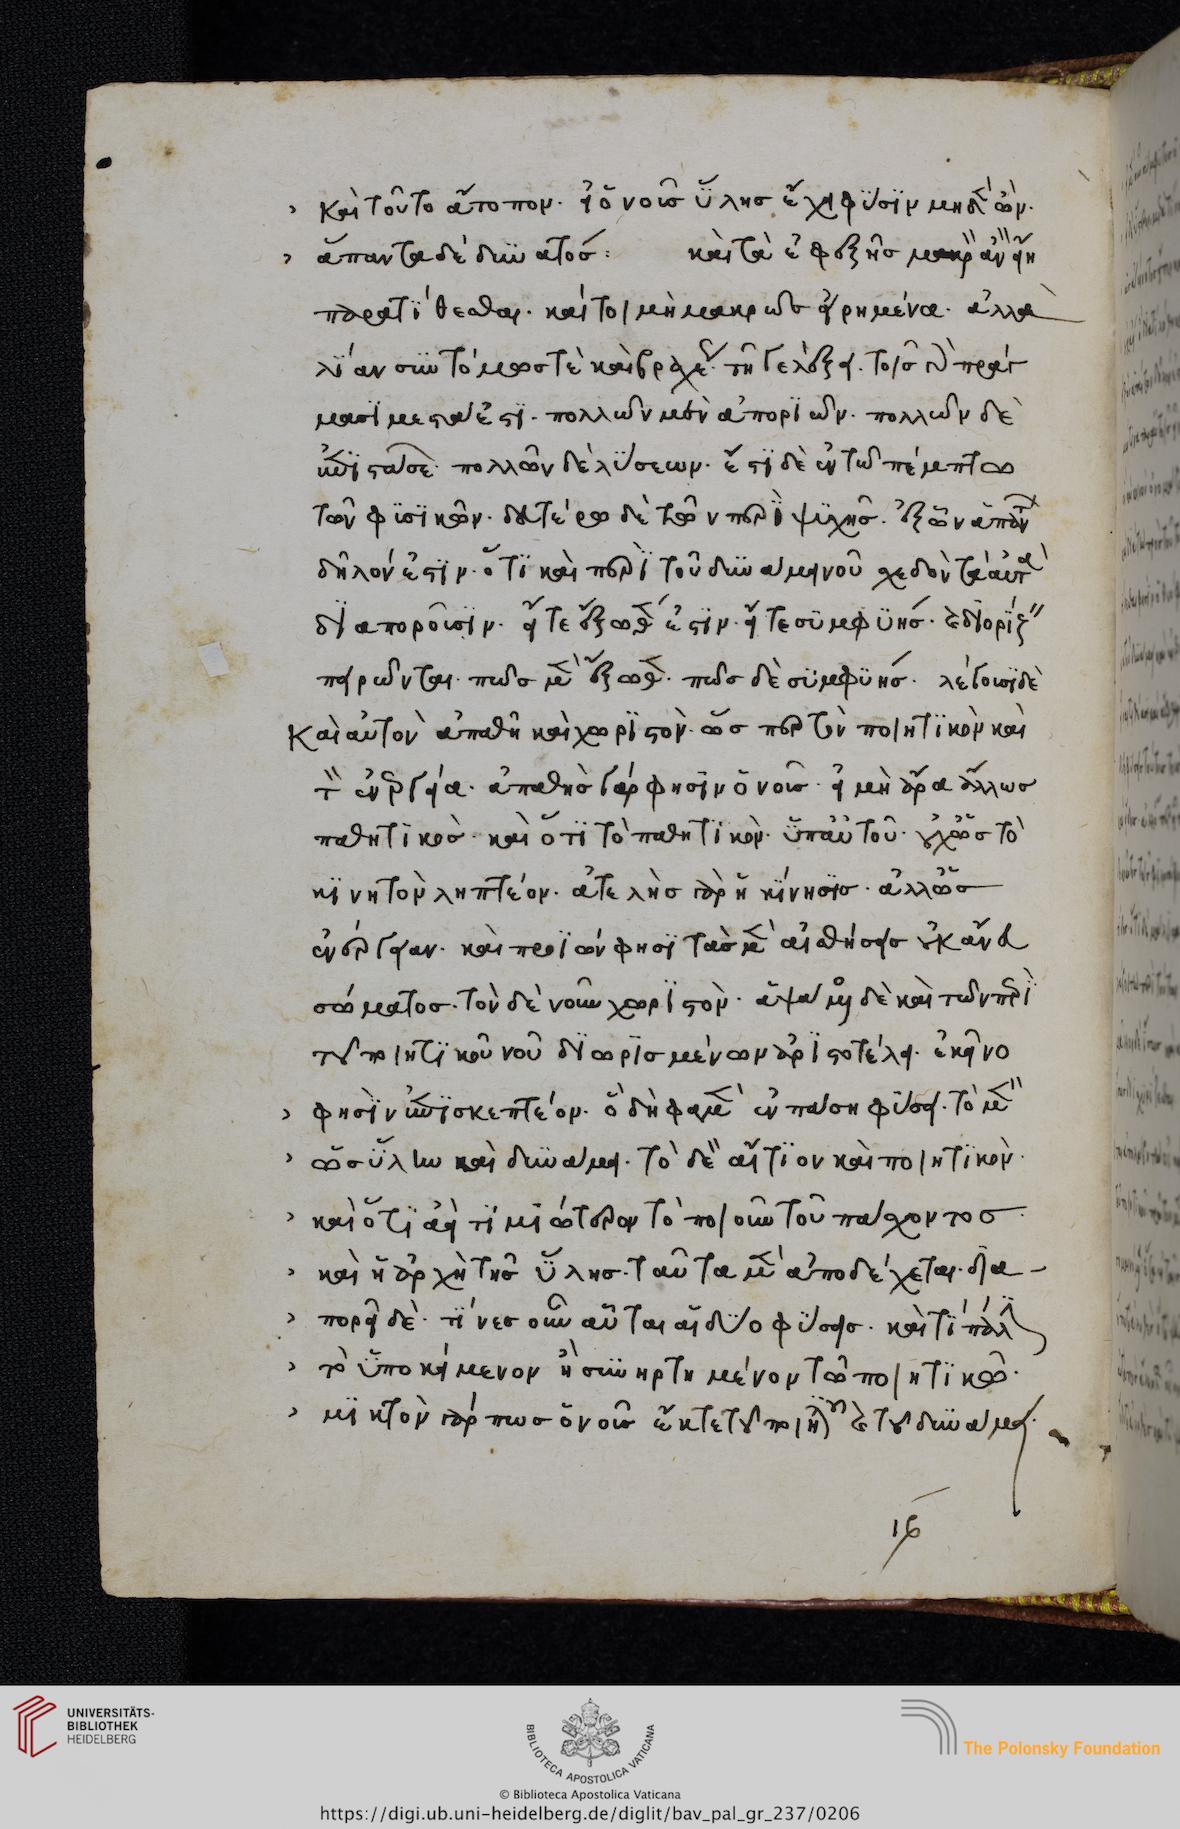 καὶ τοῦτο ἄτοπον. εἰ ὁ νοῦς ὕλης ἔχει φύσιν μηδὲν ὤν.
ἅπαντα δὲ δυνατός: καὶ τὰ ἐφεξῆς μακρὰ ἂν εἴη
παρατίθεσθαι. καίτοι μὴ μακρῶς εἰρημένα. ἀλλὰ
λίαν συντόμως τὲ καὶ βραχέως τῇ λέξει. τοῖς δὲ πράγ
μασι μεστά ἐστι. πολλῶν μὲν ἀποριῶν. πολλῶν δὲ
ἐπιστάσεων. πολλῶν δὲ λύσεων. ἔστι δὲ ἐν τῶ πέμπτω
τῶν φυσικῶν. δευτέρω δὲ τῶν περὶ ψυχῆς. ἐξ ὧν ἁπάντων
δῆλόν ἐστιν. ὅτι καὶ περὶ τοῦ δυνάμει νοῦ σχεδὸν τὰ αὐτὰ
διαποροῦσιν. εἴτε ἔξωθέν ἐστιν. εἴτε συμφυής. καὶ διορίζειν
πειρῶνται. πῶς μὲν ἔξωθεν. πῶς δὲ συμφυής. λέγουσι δὲ
καὶ αὐτὸν ἀπαθῆ καὶ χωριστὸν. ὥσπερ τὸν ποιητικὸν καὶ
τὸν ἐνεργεία. ἀπαθὴς γάρ φησιν ὁ νοῦς. εἰ μὴ ἄρα ἄλλως
παθητικὸς. καὶ ὅτι τὸ παθητικὸν ὑπ' αὐτοῦ. οὐχ ὡς τὸ
κινητὸν ληπτέον. ἀτελὴς γὰρ ἡ κίνησις. ἀλλ' ὡς
ἐνέργειαν. καὶ προϊών φησι τὰς μὲν αἰσθήσεις οὐκ ἄνευ
σώματος. τὸν δὲ νοῦν χωριστὸν. ἁψάμενος δὲ καὶ τῶν περὶ
τοῦ ποιητικοῦ νοῦ διωρισμένων ἀριστοτέλει. ἐκεῖνο
φησὶν ἐπισκεπτέον. ὃ δή φαμεν ἐν πάση φύσει. τὸ μὲν
ὡς ὕλην καὶ δυνάμει. τὸ δὲ αἴτιον καὶ ποιητικὸν.
καὶ ὅτι ἀεὶ τιμιώτερον τὸ ποιοῦν τοῦ πάσχοντος.
καὶ ἡ ἀρχὴ τῆς ὕλης. ταῦτα μὲν ἀποδέχεται. δια
πορεῖ δὲ. τίνες οὖν αὗται αἱ δύο φύσεις. καὶ τί πάλιν
τὸ ὑποκείμενον ἢ συνηρτημένον τῶ ποιητικῶ.
μικτὸν γάρ πως ὁ νοῦς ἔκ τε τοῦ ποιητικοῦ καὶ τοῦ δυνάμει.
ις
UNIVERSITÄTS-
BIBLIOTHEK
HEIDELBERG
BIBLIOTECA APOSTOLICA VATICANA
The Polonsky Foundation
© Biblioteca Apostolica Vaticana
https://digi.ub.uni-heidelberg.de/diglit/bav_pal_gr_237/0206